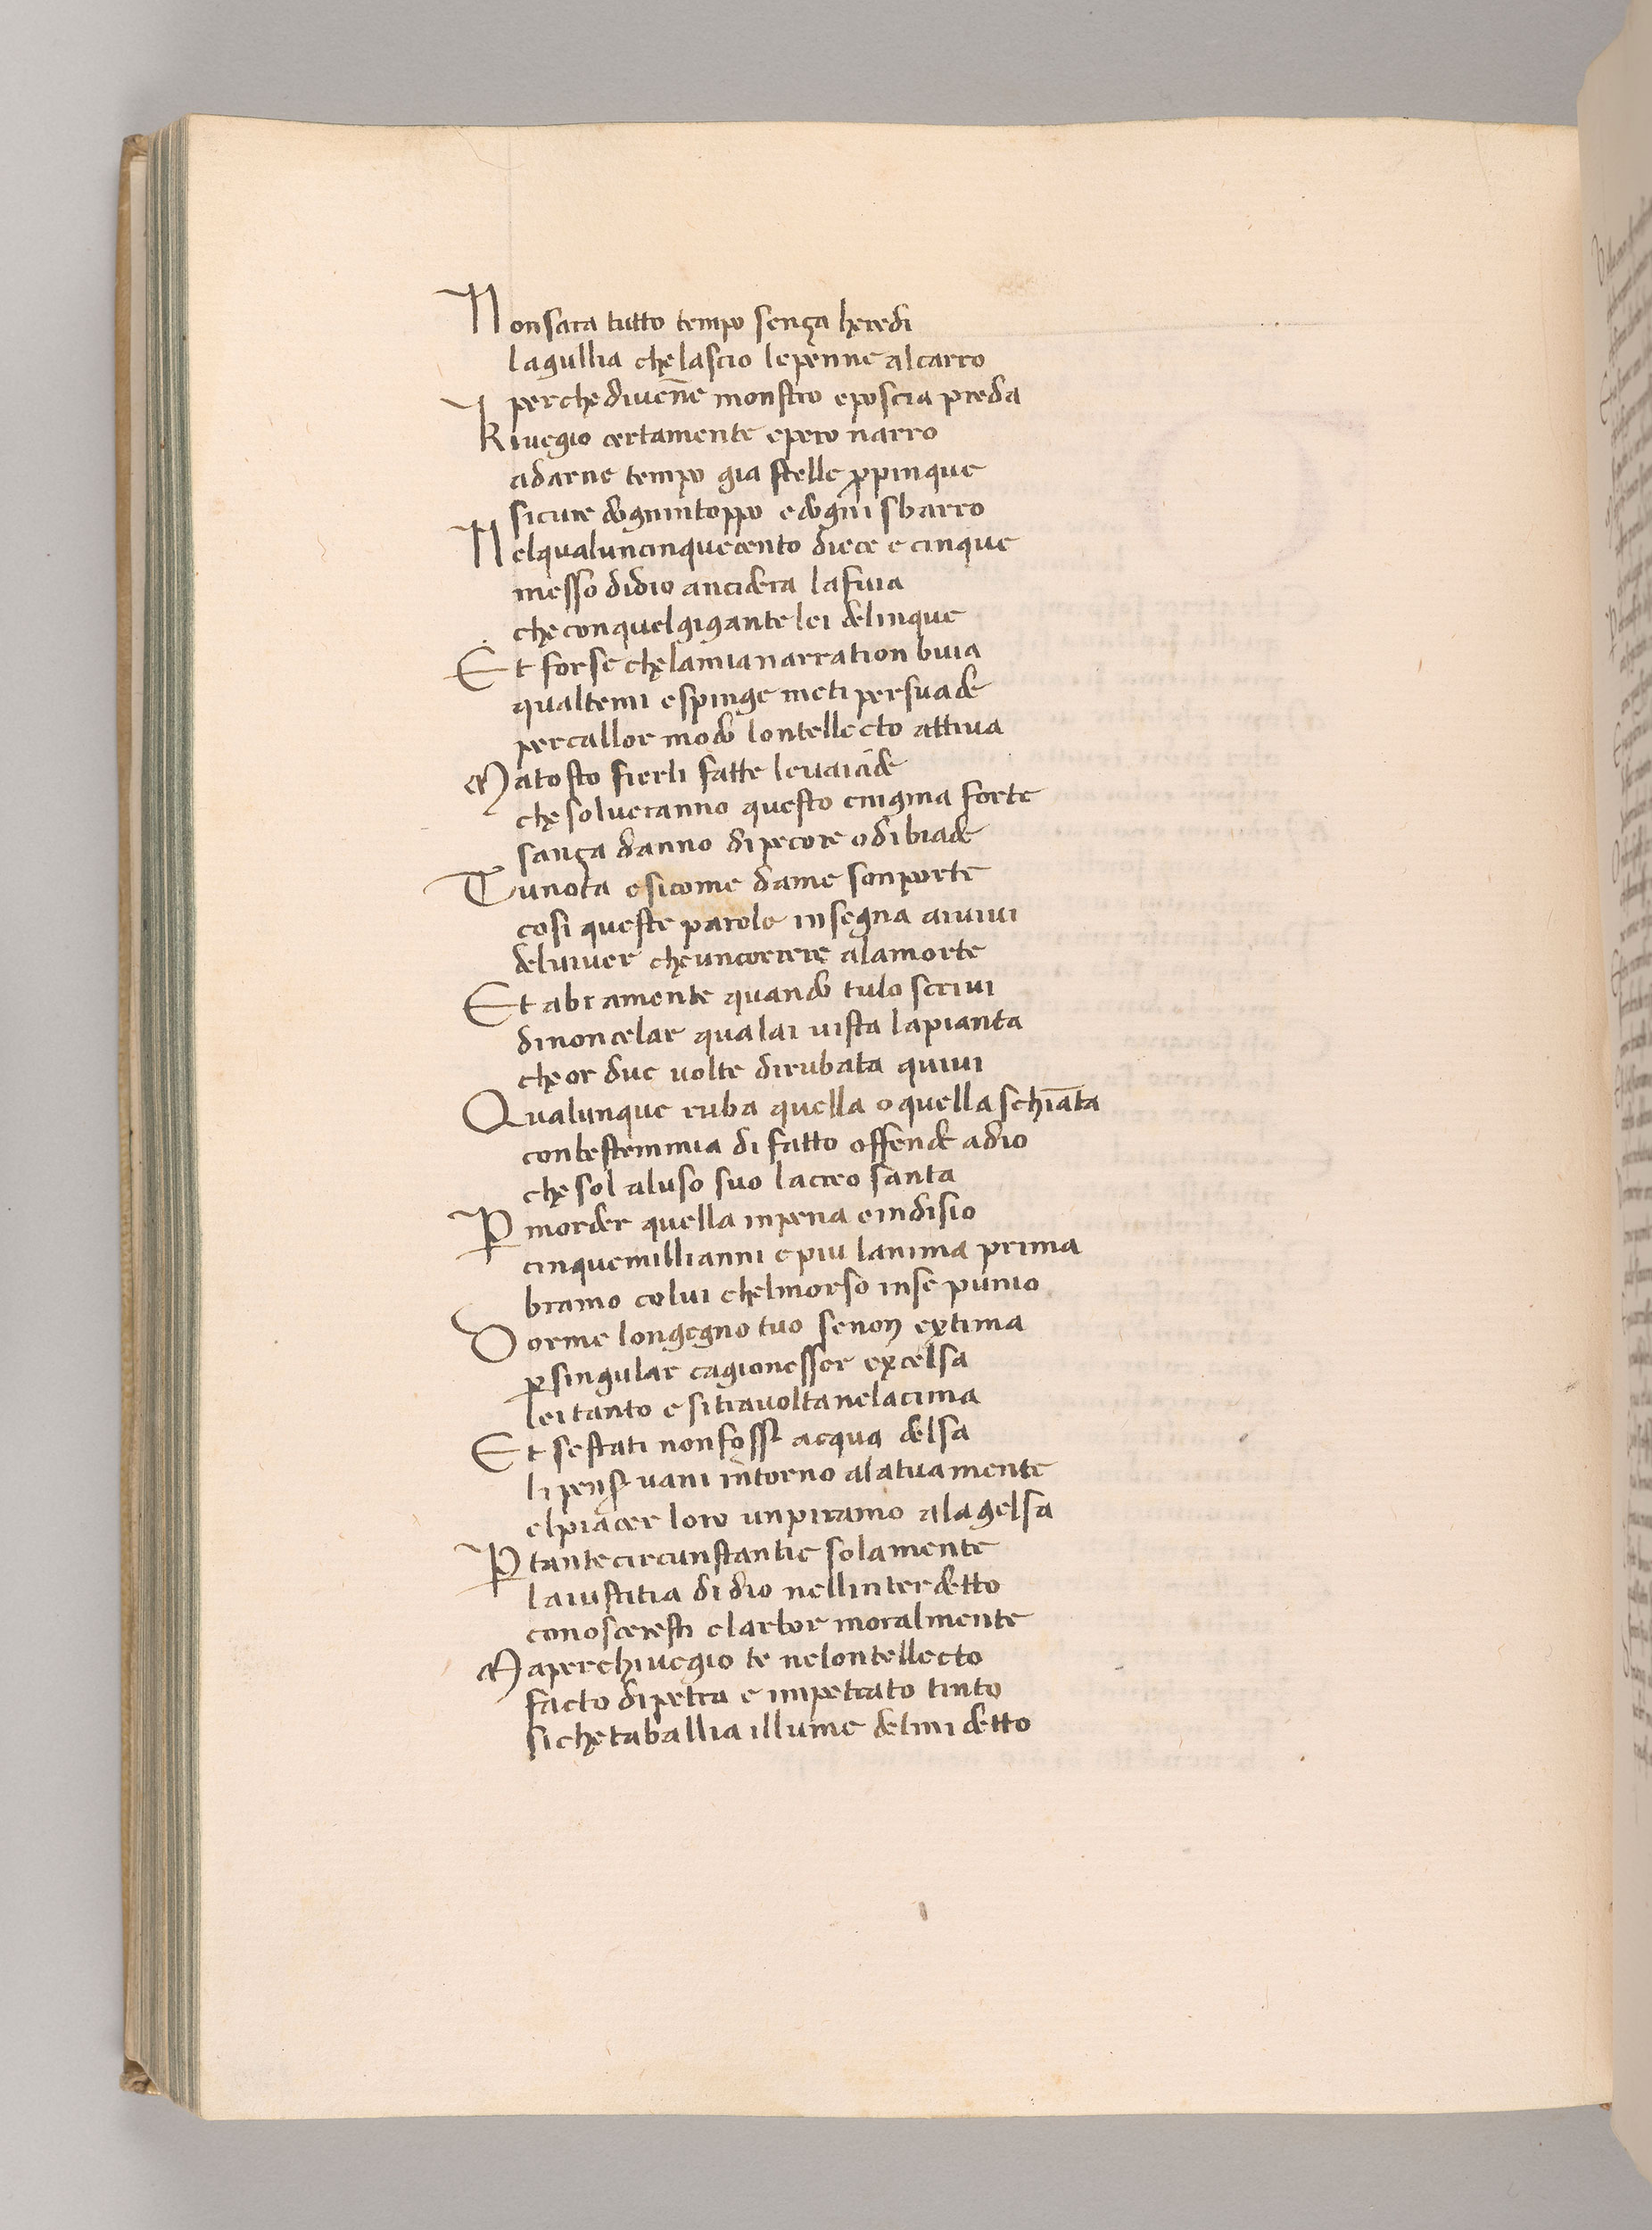 Nonsara tutto tempo sença heredi
lagullia che lascio lepenne alcarro
perche divēne monstro eposcia preda
Kivegio certamente epero narro
adarne tempo gia stelle ꝓpinque
sicure dognintoppo edogni sbarro
Nelqualuncinquecento diece e cinque
messo didio anciderа lafuia
che conquelgigante lei delinque
Et forse che lamia narration buia
qualtemi espinge meti persuade
percallor modo lontellecto attuia
Matosto fierli fatte levaiāde
che solveranno questo enigma forte
sança danno dipecore odibiade
Tunota esicome dame sonporte
cosi queste parole insegna aiuiui
deluiuer cheuncorrere alamorte
Et abiamente quando tulo scriui
dinoncelar qualai uista lapianta
che or due uolte dirubata quiui
Qualunque ruba quella oquella schiāta
conbestemmia di fatto offende adio
che sol aluso suo lacreo santa
P̱ morder quella inpena eindisio
cinquemillianni epiu lanima prima
bramo colui chelmorso inse punio
Dorme longegno tuo senon extima
ꝑ singular cagionesser excelsa
lei tanto e sitrauolta nelacima
Et sestati nonfosser acqua delsa
li penser uani intorno alatua mente
elpiacer loro unpiramo alagelsa
P̱ tante circunstantie solamente
laiustitia di dio nellinterdetto
conosceresti elarbor moralmente
Maperchiuegio te nelontellecto
facto dipetra e impetrato tinto
siche tabballia illume delmi detto